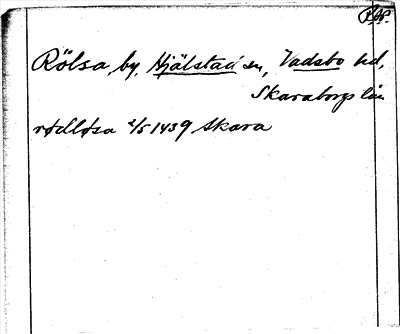 Rölsa, by, Hjälstad sn, Vadsbo hd,
Skaraborgs län
rødløsa 2/5 1439 Skara